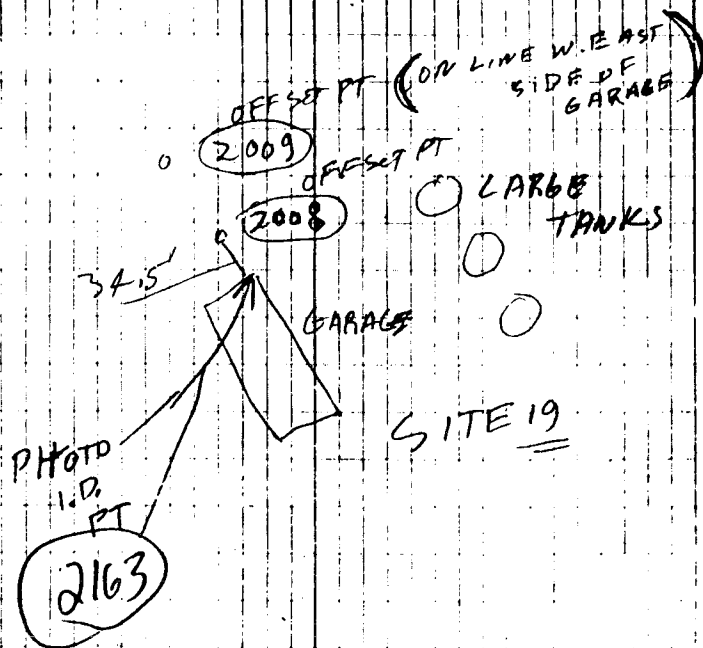 OFFSET PT (ON LINE W. EAST
SIDE OF
GARAGE)
2009
OFFSET PT
2008
LARGE
TANKS
34.5'
GARAGE
SITE 19
PHOTO
I.D.
PT
2163